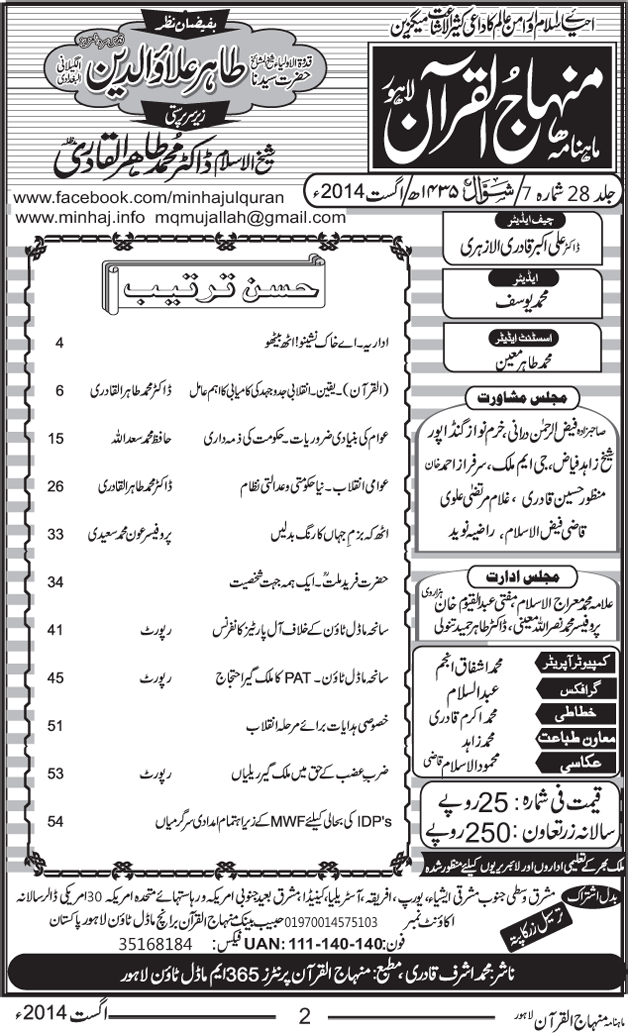 احیائے اسلام اور امن عالم کا داعی کثیر الاشاعت میگزین
ماہنامہ منہاج القرآن لاہور
بفیضان نظر
قدوۃ الاولیاء شیخ المشائخ
حضرت سیدنا طاہر علاؤالدین
الگیلانی البغدادی
زیر سرپرستی
شیخ الاسلام ڈاکٹر محمد طاہر القادری
جلد 28 شمارہ 7 / شوال ۱۴۳۵ھ / اگست 2014ء
www.facebook.com/minhajulquran
www.minhaj.info mqmujallah@gmail.com
چیف ایڈیٹر
ڈاکٹر علی اکبر قادری الازہری
ایڈیٹر
محمد یوسف
اسسٹنٹ ایڈیٹر
محمد طاہر معین
مجلس مشاورت
صاحبزادہ فیض الرحمن درانی، خرم نواز گنڈاپور
شیخ زاہد فیاض، جی ایم ملک، سرفراز احمد خان
منظور حسین قادری، غلام مرتضیٰ علوی
قاضی فیض الاسلام، راضیہ نوید
مجلس ادارت
علامہ محمد معراج الاسلام، مفتی عبدالقیوم خان ہزاروی
پروفیسر محمد نصر اللہ معینی، ڈاکٹر طاہر حمید تنولی
کمپیوٹر آپریٹر محمد اشفاق انجم
گرافکس عبدالسلام
خطاطی محمد اکرم قادری
معاون طباعت محمد زاہد
عکاسی محمود الاسلام قاضی
قیمت فی شمارہ: 25 روپے
سالانہ زر تعاون: 250 روپے
ملک بھر کے تعلیمی اداروں اور لائبریریوں کیلئے منظور شدہ
حسن ترتیب
اداریہ۔ اے خاک نشینو! اٹھ بیٹھو 4
(القرآن)۔ یقین۔ انقلابی جدوجہد کی کامیابی کا اہم عامل ڈاکٹر محمد طاہر القادری 6
عوام کی بنیادی ضروریات۔ حکومت کی ذمہ داری حافظ محمد سعد اللہ 15
عوامی انقلاب۔ نیا حکومتی و عدالتی نظام ڈاکٹر محمد طاہر القادری 26
اٹھ کہ بزم جہاں کا رنگ بدلیں پروفیسر عون محمد سعیدی 33
حضرت فرید ملتؒ۔ ایک ہمہ جہت شخصیت 34
سانحہ ماڈل ٹاؤن کے خلاف آل پارٹیز کانفرنس رپورٹ 41
سانحہ ماڈل ٹاؤن۔ PAT کا ملک گیر احتجاج رپورٹ 45
خصوصی ہدایات برائے مرحلہ انقلاب 51
ضرب عضب کے حق میں ملک گیر ریلیاں رپورٹ 53
IDP's کی بحالی کیلئے MWF کے زیر اہتمام امدادی سرگرمیاں 54
بدل اشتراک مشرق وسطی جنوب مشرقی ایشیاء، یورپ، افریقہ، آسٹریلیا، کینیڈا، مشرق بعید جنوبی امریکہ و ریاستہائے متحدہ امریکہ 30 امریکی ڈالر سالانہ
ترسیل زر کا پتہ اکاؤنٹ نمبر 01970014575103 حبیب بینک منہاج القرآن برانچ ماڈل ٹاؤن لاہور پاکستان
فون: UAN: 111-140-140 فیکس: 35168184
ناشر: محمد اشرف قادری، مطبع: منہاج القرآن پرنٹرز 365 ایم ماڈل ٹاؤن لاہور
ماہنامہ منہاج القرآن لاہور 2 اگست 2014ء